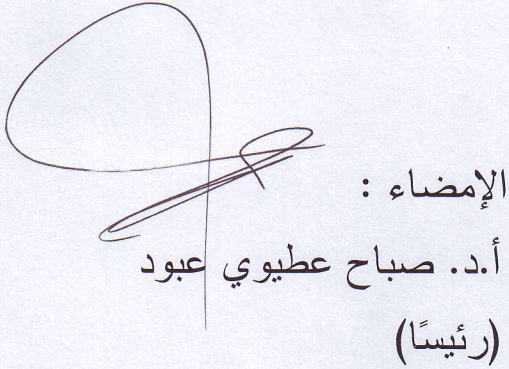 الإمضاء :
أ.د. صباح عطيوي عبود
(رئيسًا)